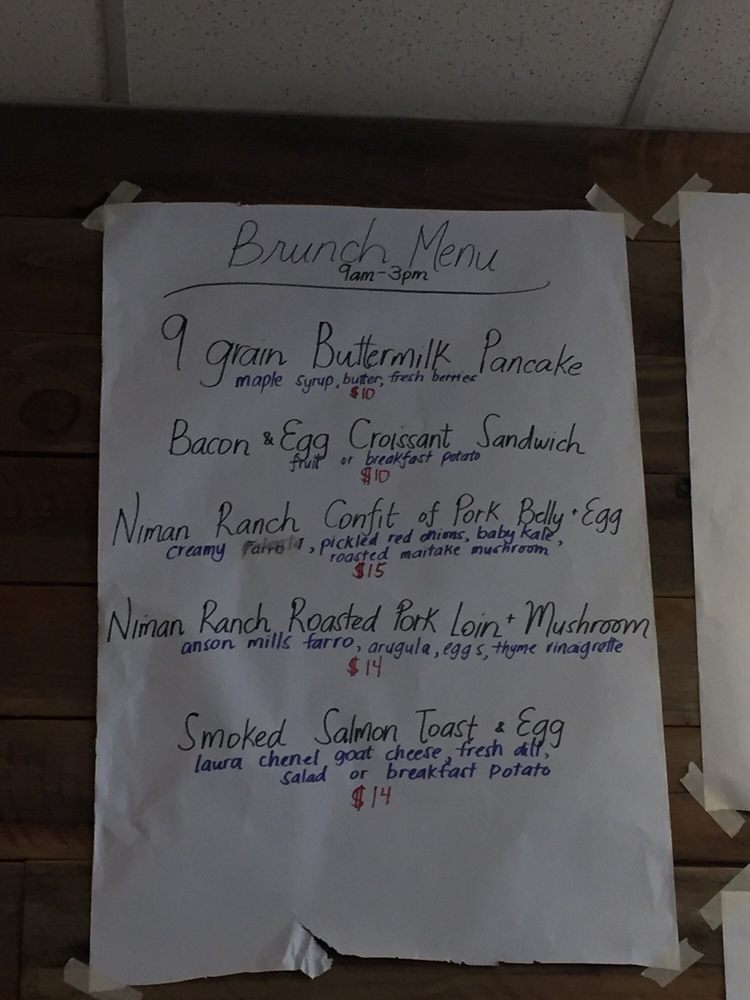 Brunch Menu
9am-3pm
9 grain Buttermilk Pancake
maple syrup, butter, fresh berries
$10
Bacon & Egg Croissant Sandwich
fruit or breakfast potato
$10
Niman Ranch Confit of Pork Belly + Egg
creamy , pickled red onions, baby kale,
roasted maitake mushroom
$15
Niman Ranch Roasted Pork Loin + Mushroom
anson mills farro, arugula, eggs, thyme vinaigrette
$14
Smoked Salmon Toast & Egg
laura chenel goat cheese, fresh dill,
salad or breakfast potato
$14